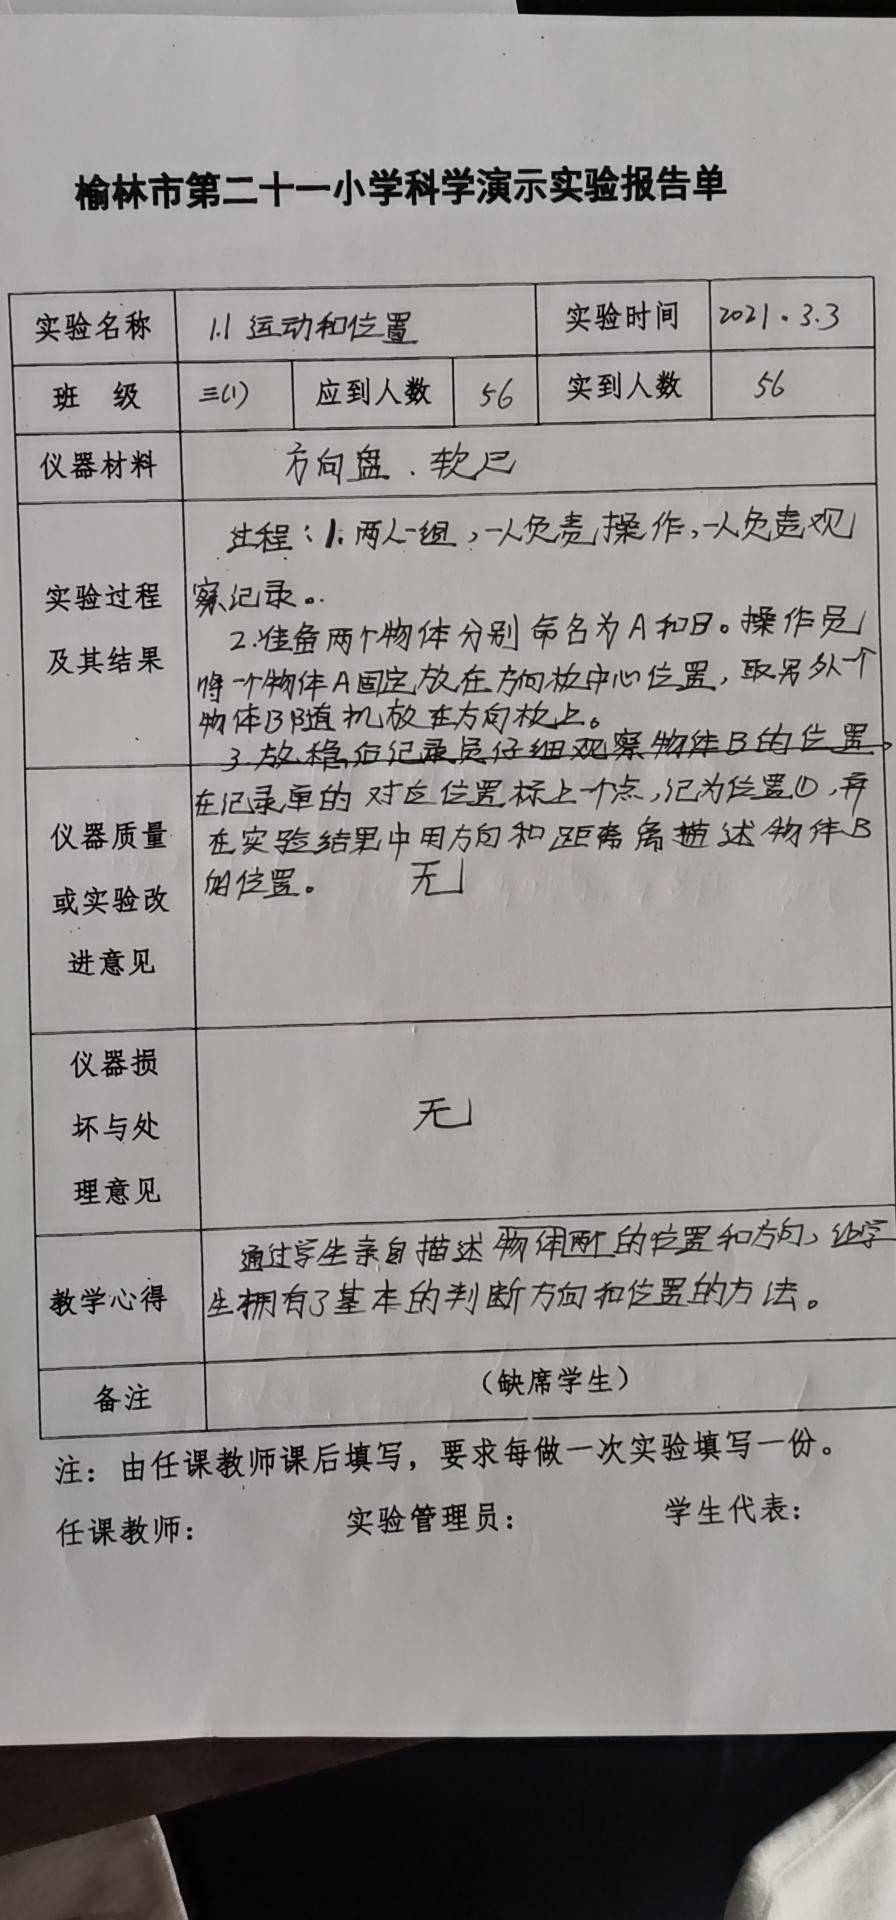 榆林市第二十一小学科学演示实验报告单
实验名称 1.1 运动和位置 实验时间 2021.3.3
班 级 三(1) 应到人数 56 实到人数 56
仪器材料 方向盘、软尺
实验过程
及其结果
过程:1.两人一组,一人负责操作,一人负责观
察记录。
2.准备两个物体分别命名为A和B。操作员
将一个物体A固定放在方向板中心位置,取另外一个
物体B随机放在方向板上。
3.放稳后记录员仔细观察物体B的位置,
仪器质量
或实验改
进意见
在记录单的对应位置标上一个点,记为位置①,并
在实验结果中用方向和距离描述物体B
的位置。 无
仪器损
坏与处
理意见
无
教学心得
通过学生亲自描述物体的位置和方向,让学
生拥有了基本的判断方向和位置的方法。
备注 (缺席学生)
注:由任课教师课后填写,要求每做一次实验填写一份。
任课教师: 实验管理员: 学生代表: